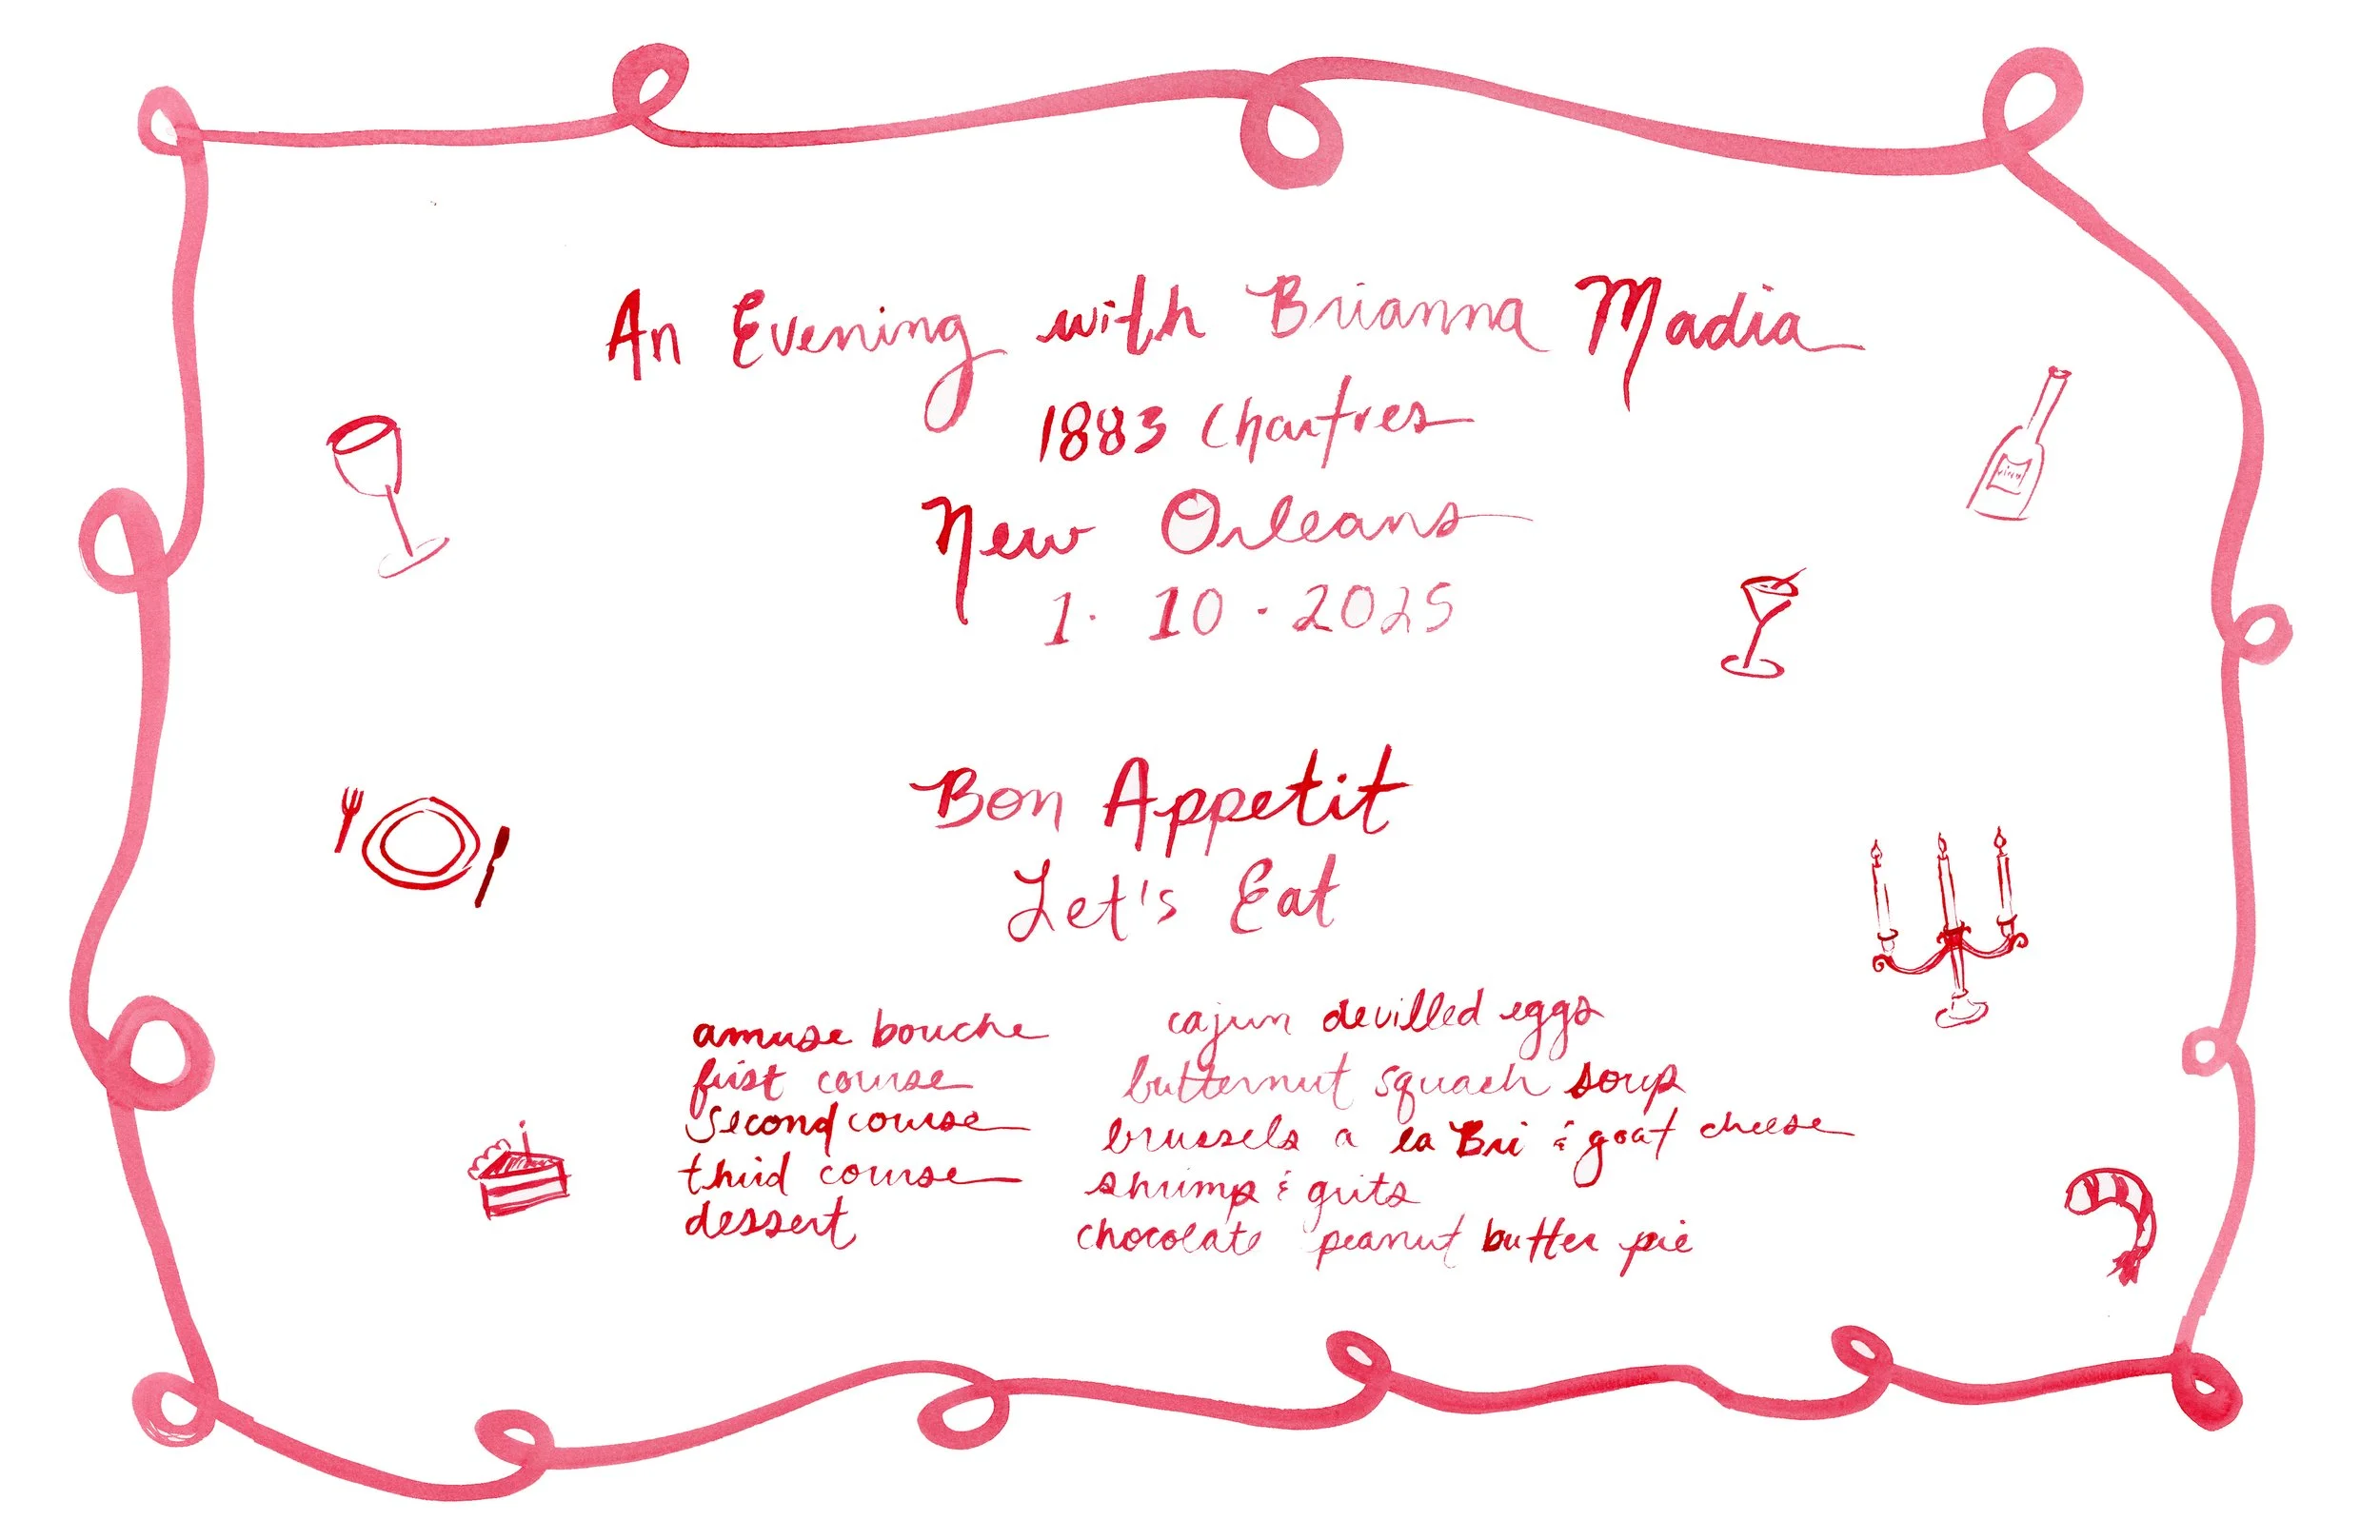 An Evening with Brianna Madia
1883 Chartres
New Orleans
1 · 10 · 2025
Bon Appetit
Let's Eat
amuse bouche cajun devilled eggs
first course butternut squash soup
second course brussels a la Bri & goat cheese
third course shrimp & grits
dessert chocolate peanut butter pie